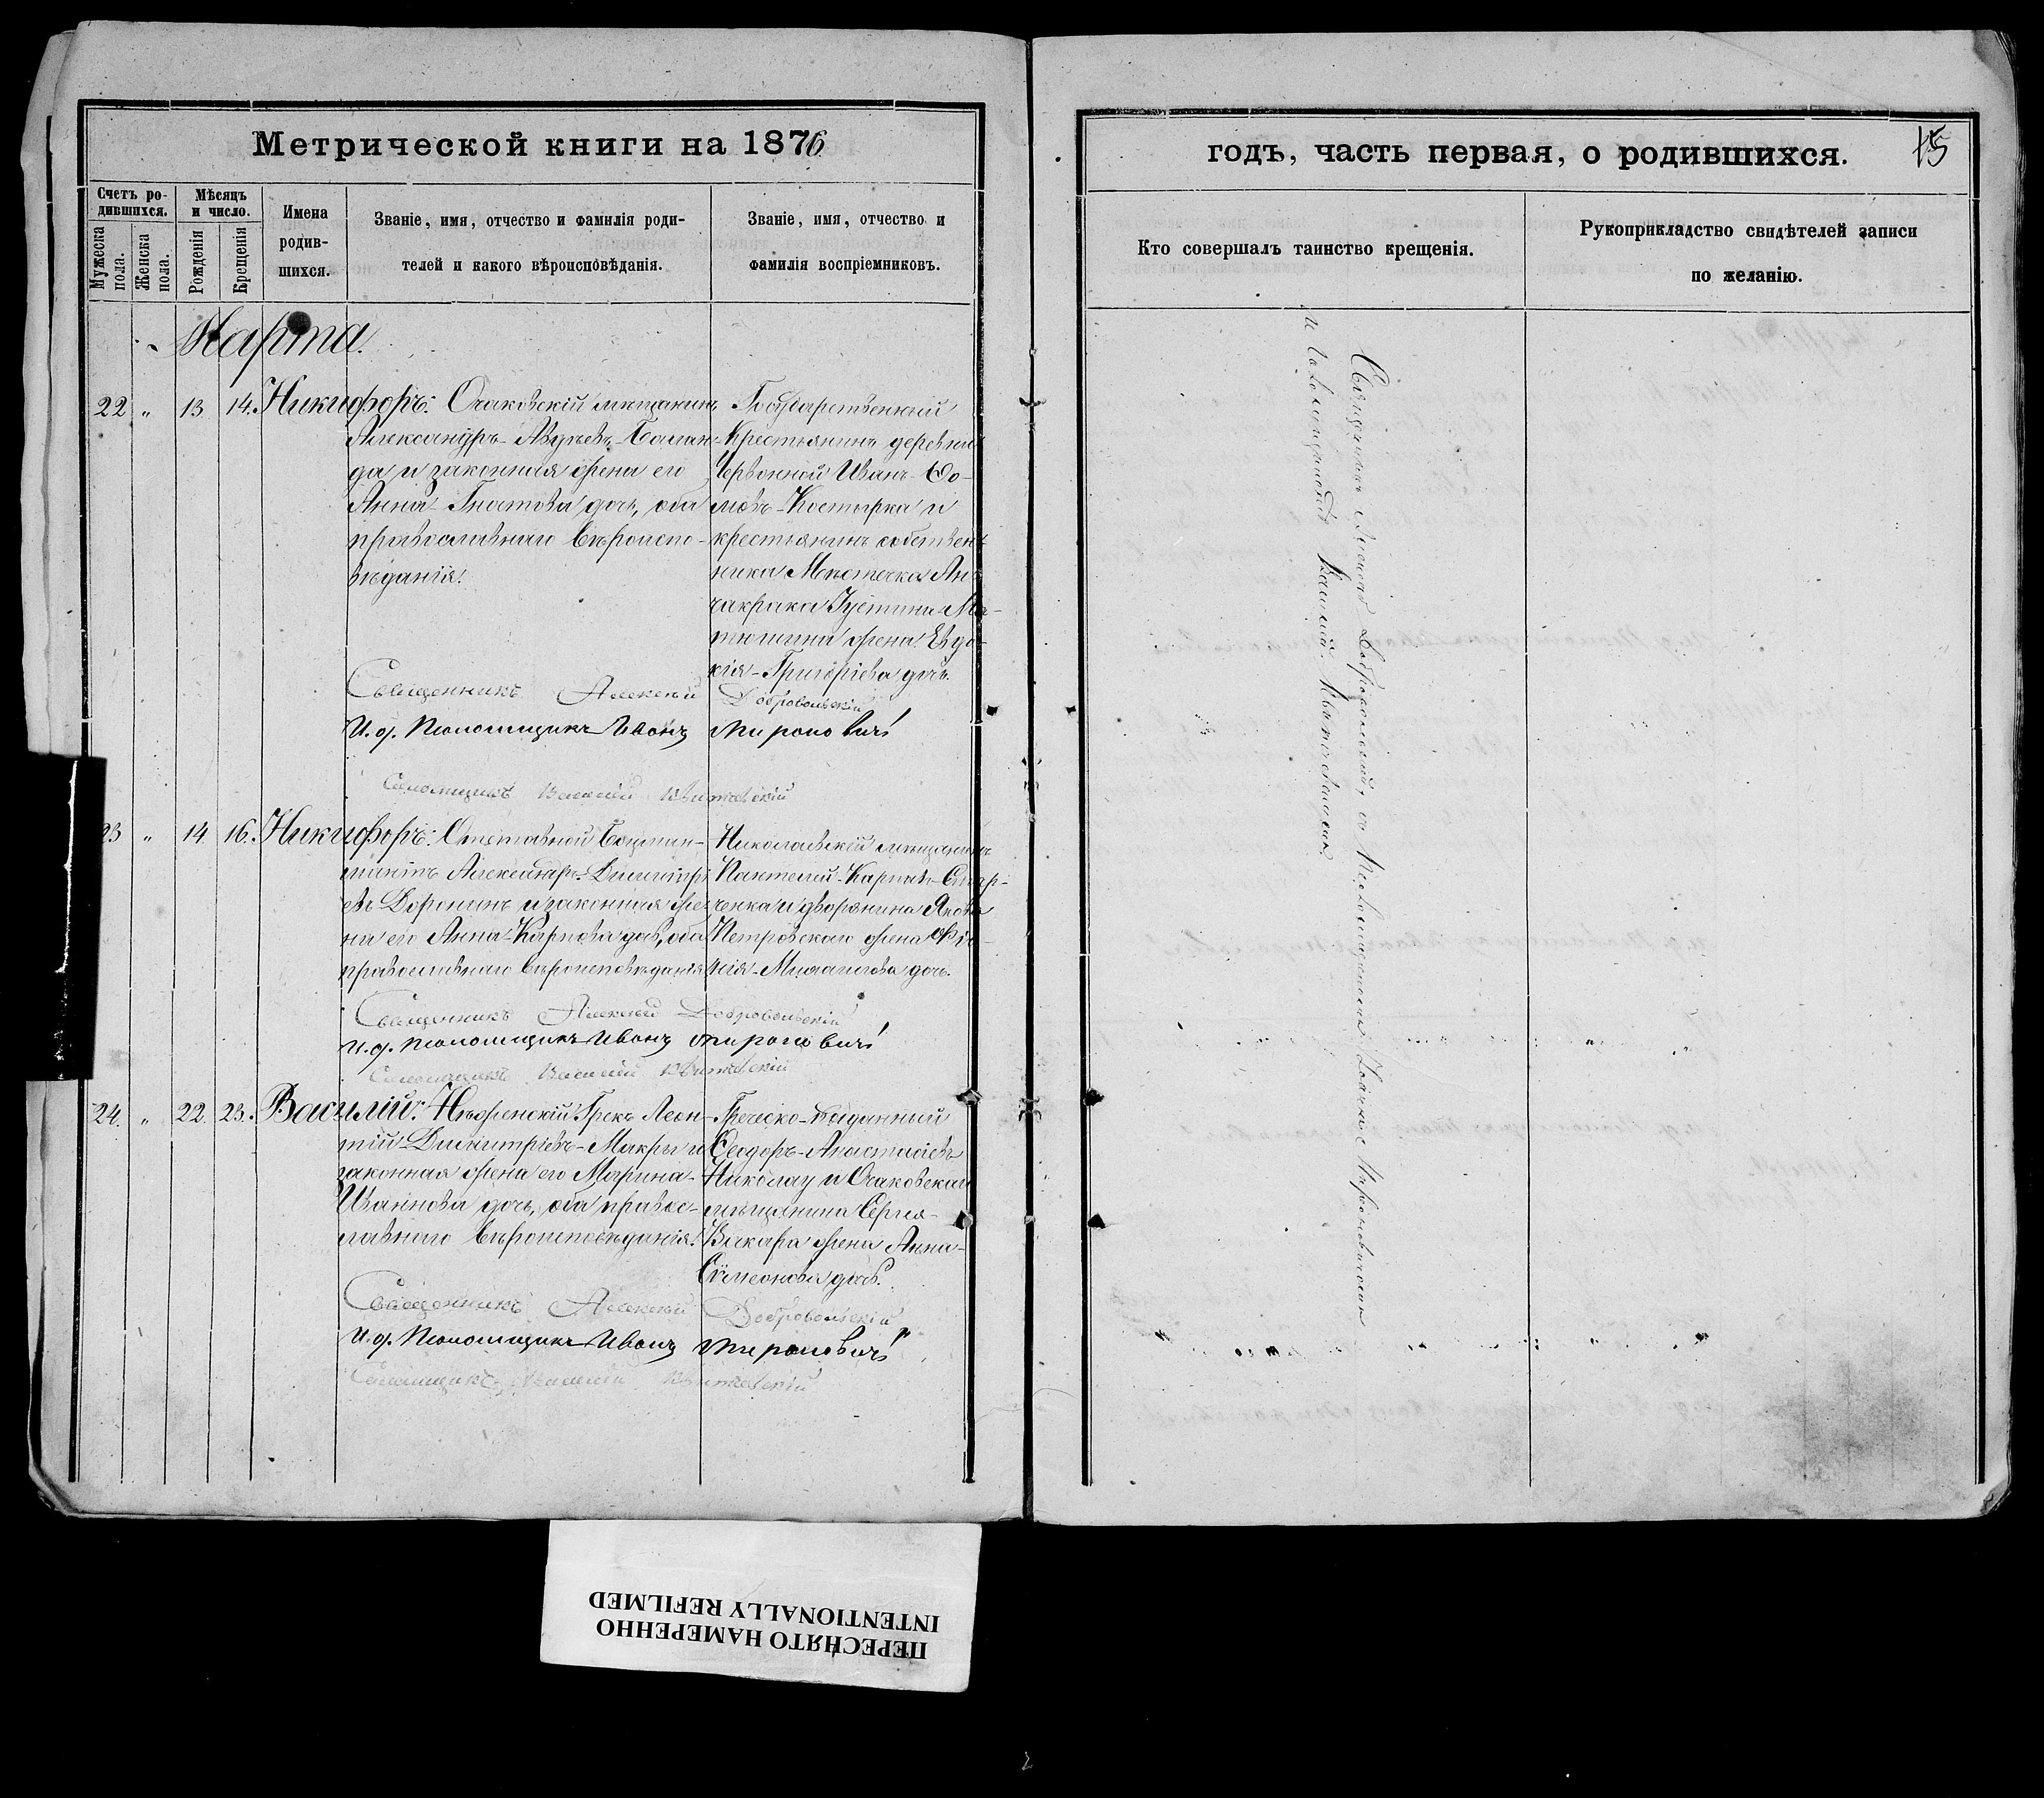 Метрической книги на 1876
Счетъ ро-
дившихся.
Мужеска
пола.
Женска
пола.
Мѣсяцъ
и число.
Рожденія
Крещенія
Имена
родив-
шихся.
Званіе, имя, отчество и фамилія роди-
телей и какого вѣроисповѣданія.
Званіе, имя, отчество и
фамилія воспріемниковъ.
Марта.
22 " 13 14. Никифоръ:
Очаковскій мѣщанинъ
Александръ Авдѣевъ
да и законная жена его
Анна Игнатова дочь, оба
православнаго вѣроиспо-
вѣданія.
Государственный
крестьянинъ деревни
Иванъ Ѳо-
мовъ Костырка и
крестьянинъ собствен
ника Мѣстечка Ан
чакрака Густина Ма-
тюшина жена Евдо-
кія Григоріева дочь.
Священникъ Алексѣй Добровольскій
И. д. Псаломщика Иванъ Мироновичъ
Псаломщикъ Василій
23 " 14 16. Никифоръ:
Отставной Боцман-
матъ Александръ Димитрі
евъ Доронинъ и законная же-
на его Анна Карпова дочь, оба
православнаго вѣроисповѣданія
Николаевскій мѣщанинъ
Пантелей Карповъ Стар-
ченка и дворянина Якова
Петровскаго жена
дочь.
Священникъ Алексѣй Добровольскій
И. д. Псаломщика Иванъ Мироновичъ
Псаломщикъ Василій
24. " 22. 23. Василій:
Нѣженскій Грекъ Леон-
тій Димитріевъ Макры и
законная жена его Марина
Иваннова дочь, оба правос-
лавнаго вѣроисповѣданія.
Греческо-подданный
Ѳеодоръ Анастасіевъ
Николау и Очаковскаго
мѣщанина Сергія
Вакара жена Анна
Сѵмеонова дочь.
Священникъ Алексѣй Добровольскій
И. д. Псаломщика Иванъ Мироновичъ
Псаломщикъ Василій
годъ, часть первая, о родившихся.
15
Кто совершалъ таинство крещенія.
Рукоприкладство свидѣтелей записи
по желанію.
Священникъ Алексѣй Добровольскій, съ Псаломщикомъ
и Псаломщикомъ Василіемъ
ПЕРЕСНЯТО НАМЕРЕННО
INTENTIONALLY REFILMED